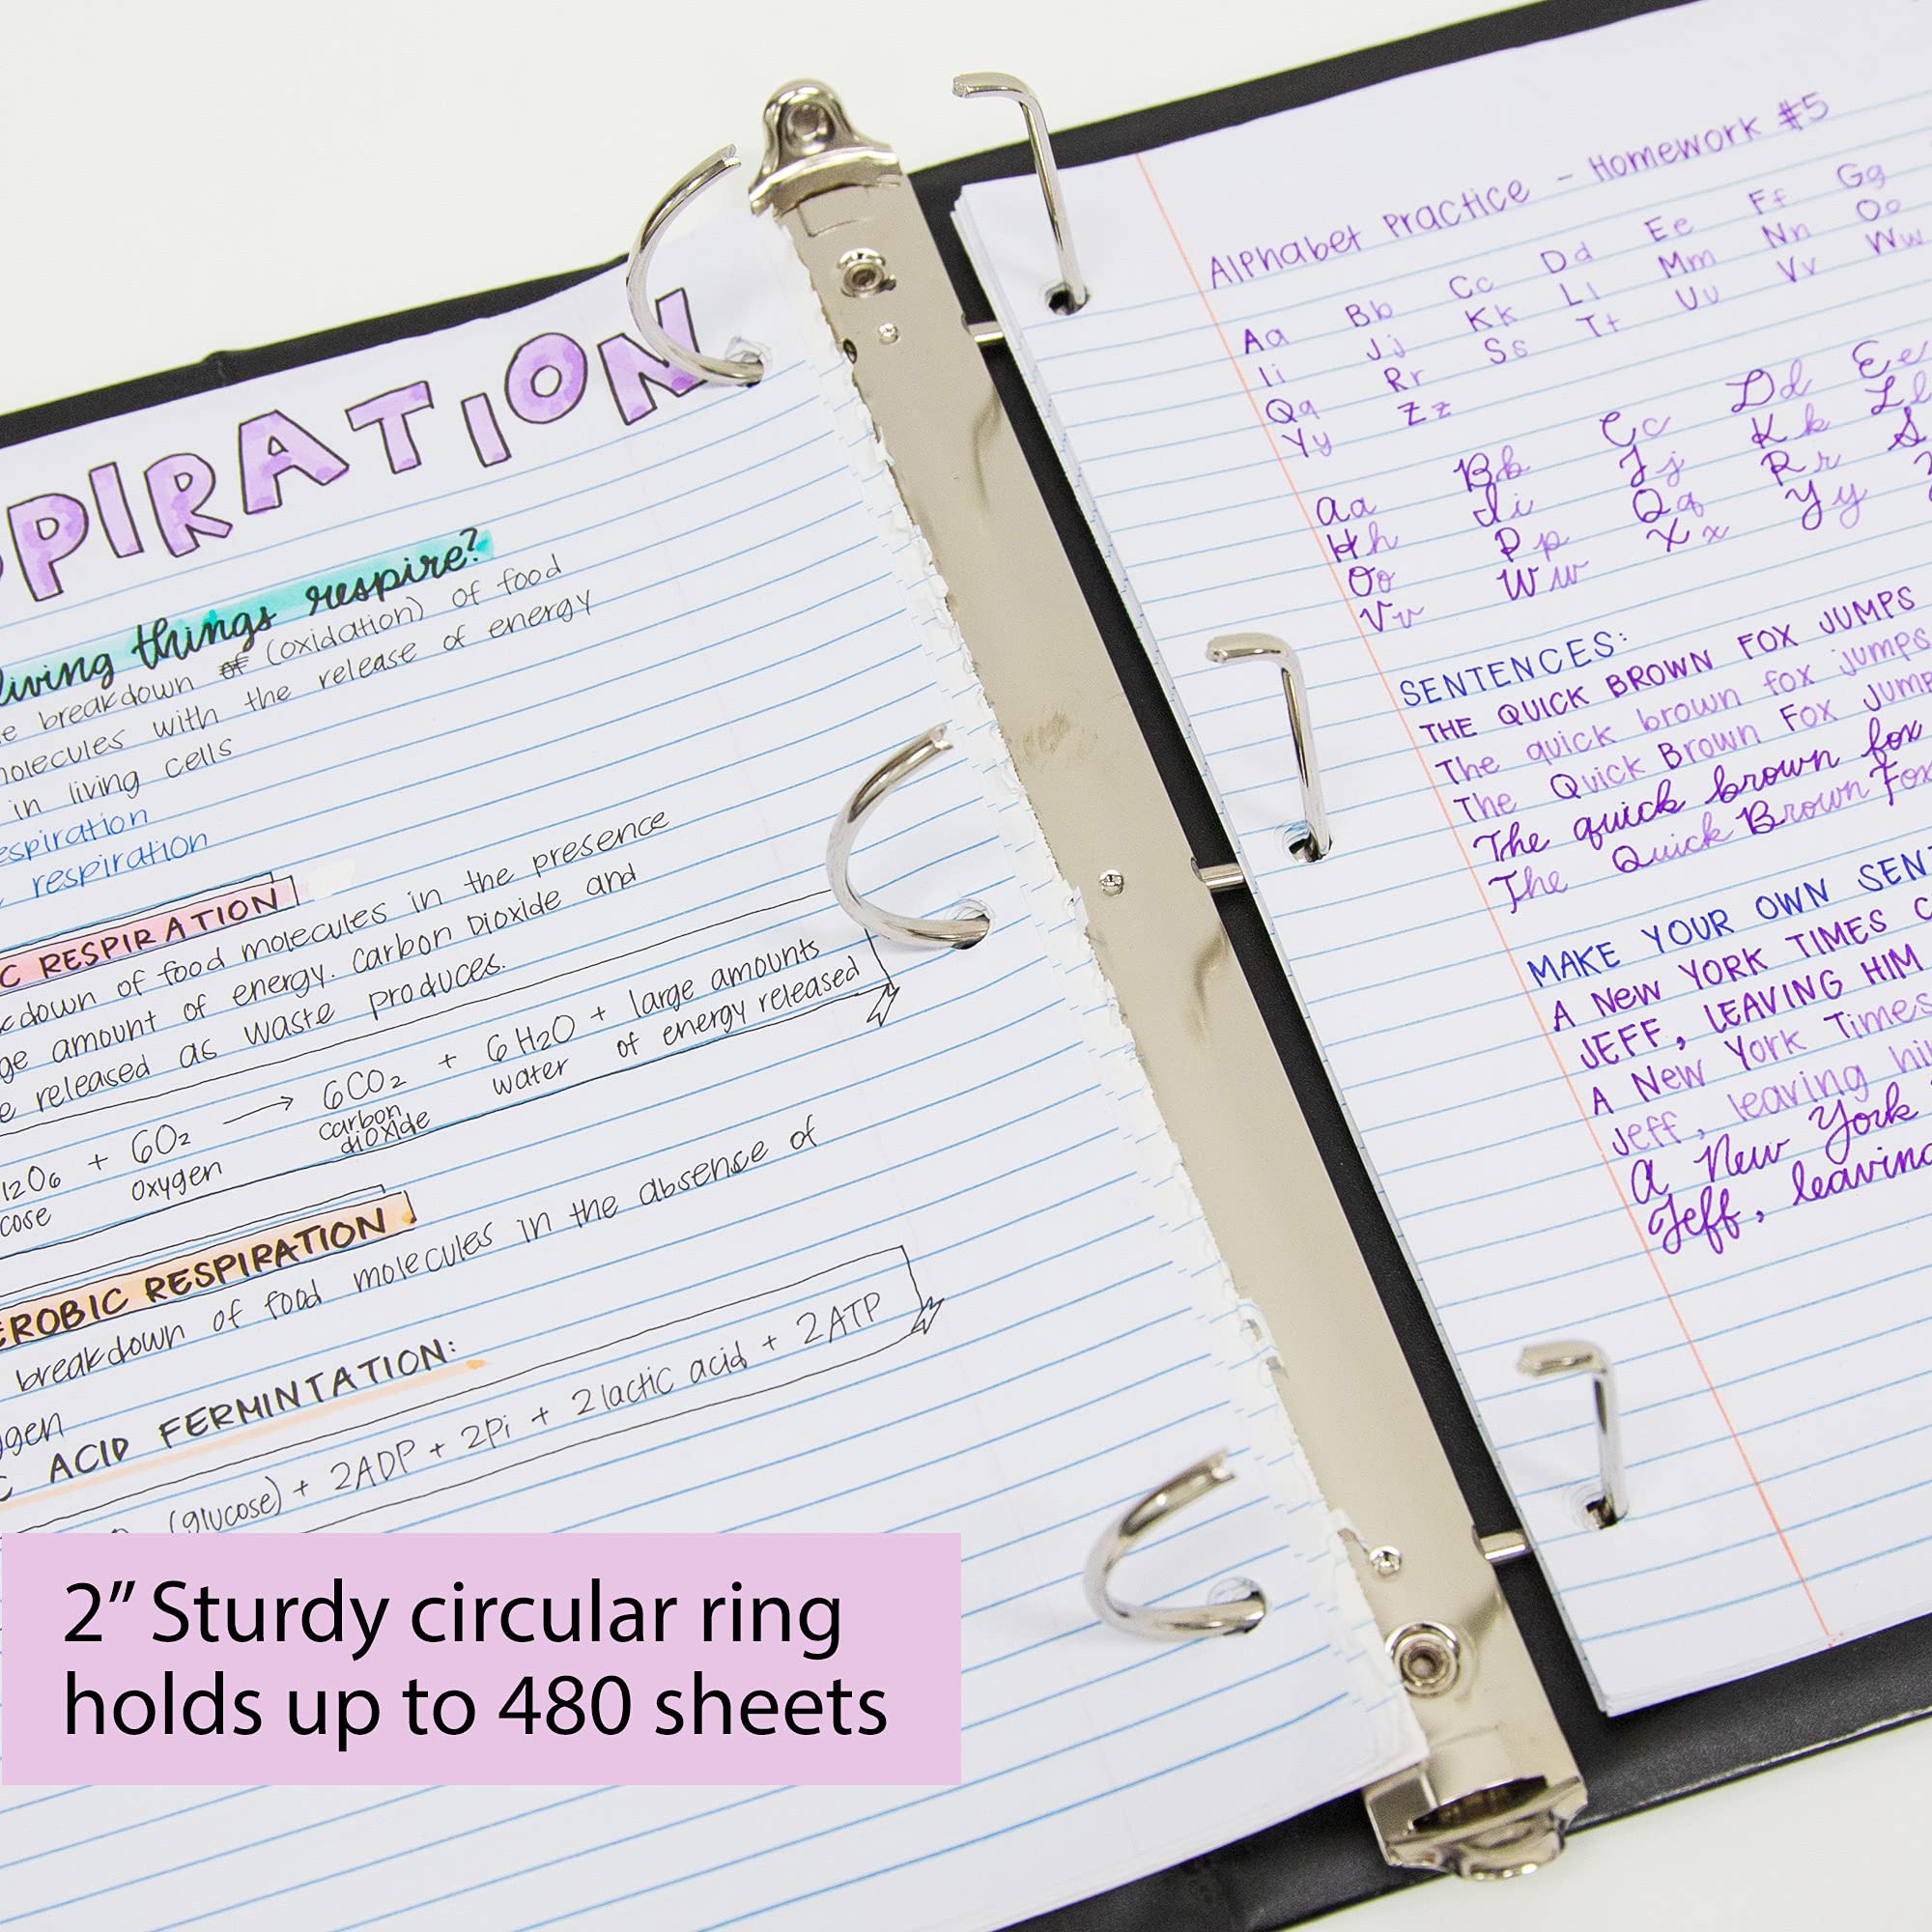 PIRATION
living things respire?
breakdown of (oxidation) of food
molecules with the release of energy
in living cells
respiration
respiration
C RESPIRATION
down of food molecules in the presence
amount of energy. Carbon Dioxide and
released as waste produces.
12O6 + 6O2 → 6CO2 + 6H2O + large amounts
cose oxygen carbon dioxide water of energy released
EROBIC RESPIRATION
breakdown of food molecules in the absence of
gen
C ACID FERMINTATION:
(glucose) + 2ADP + 2Pi + 2 lactic acid + 2ATP
2” Sturdy circular ring
holds up to 480 sheets
Alphabet Practice - Homework #5
Aa Bb Cc Dd Ee Ff Gg
Ii Jj Kk Ll Mm Nn Oo
Qq Rr Ss Tt Uu Vv Ww
Yy Zz
Aa Bb Cc Dd Ee
Hh Ii Jj Kk Ll
Oo Pp Qq Rr S
Vv Ww Xx Yy
SENTENCES:
THE QUICK BROWN FOX JUMPS
The quick brown fox jumps
The Quick Brown Fox Jump
The quick brown fox
The Quick Brown Fox
MAKE YOUR OWN SENT
A NEW YORK TIMES C
JEFF, LEAVING HIM
A New York Times
Jeff, leaving hi
A New York
Jeff, leaving